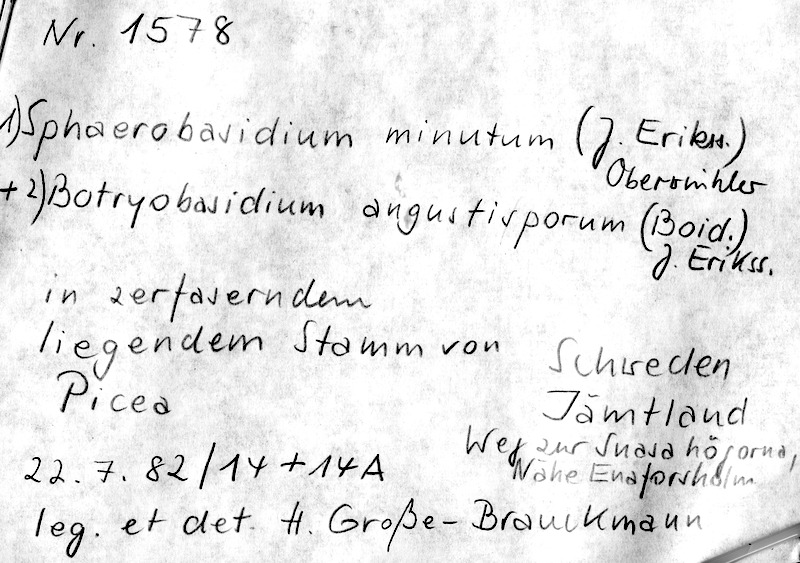 Nr. 1578
1) Sphaerobasidium minutum (J. Erikss.)
Oberwinkler
+ 2) Botryobasidium angustisporum (Boid.)
J. Erikss.
in zerfaserndem
liegendem Stamm von
Picea
Schweden
Jämtland
Weg zur Snasa högorna,
Nähe Enaforsholm
22. 7. 82 / 14 + 14A
leg. et det. H. Große-Brauckmann